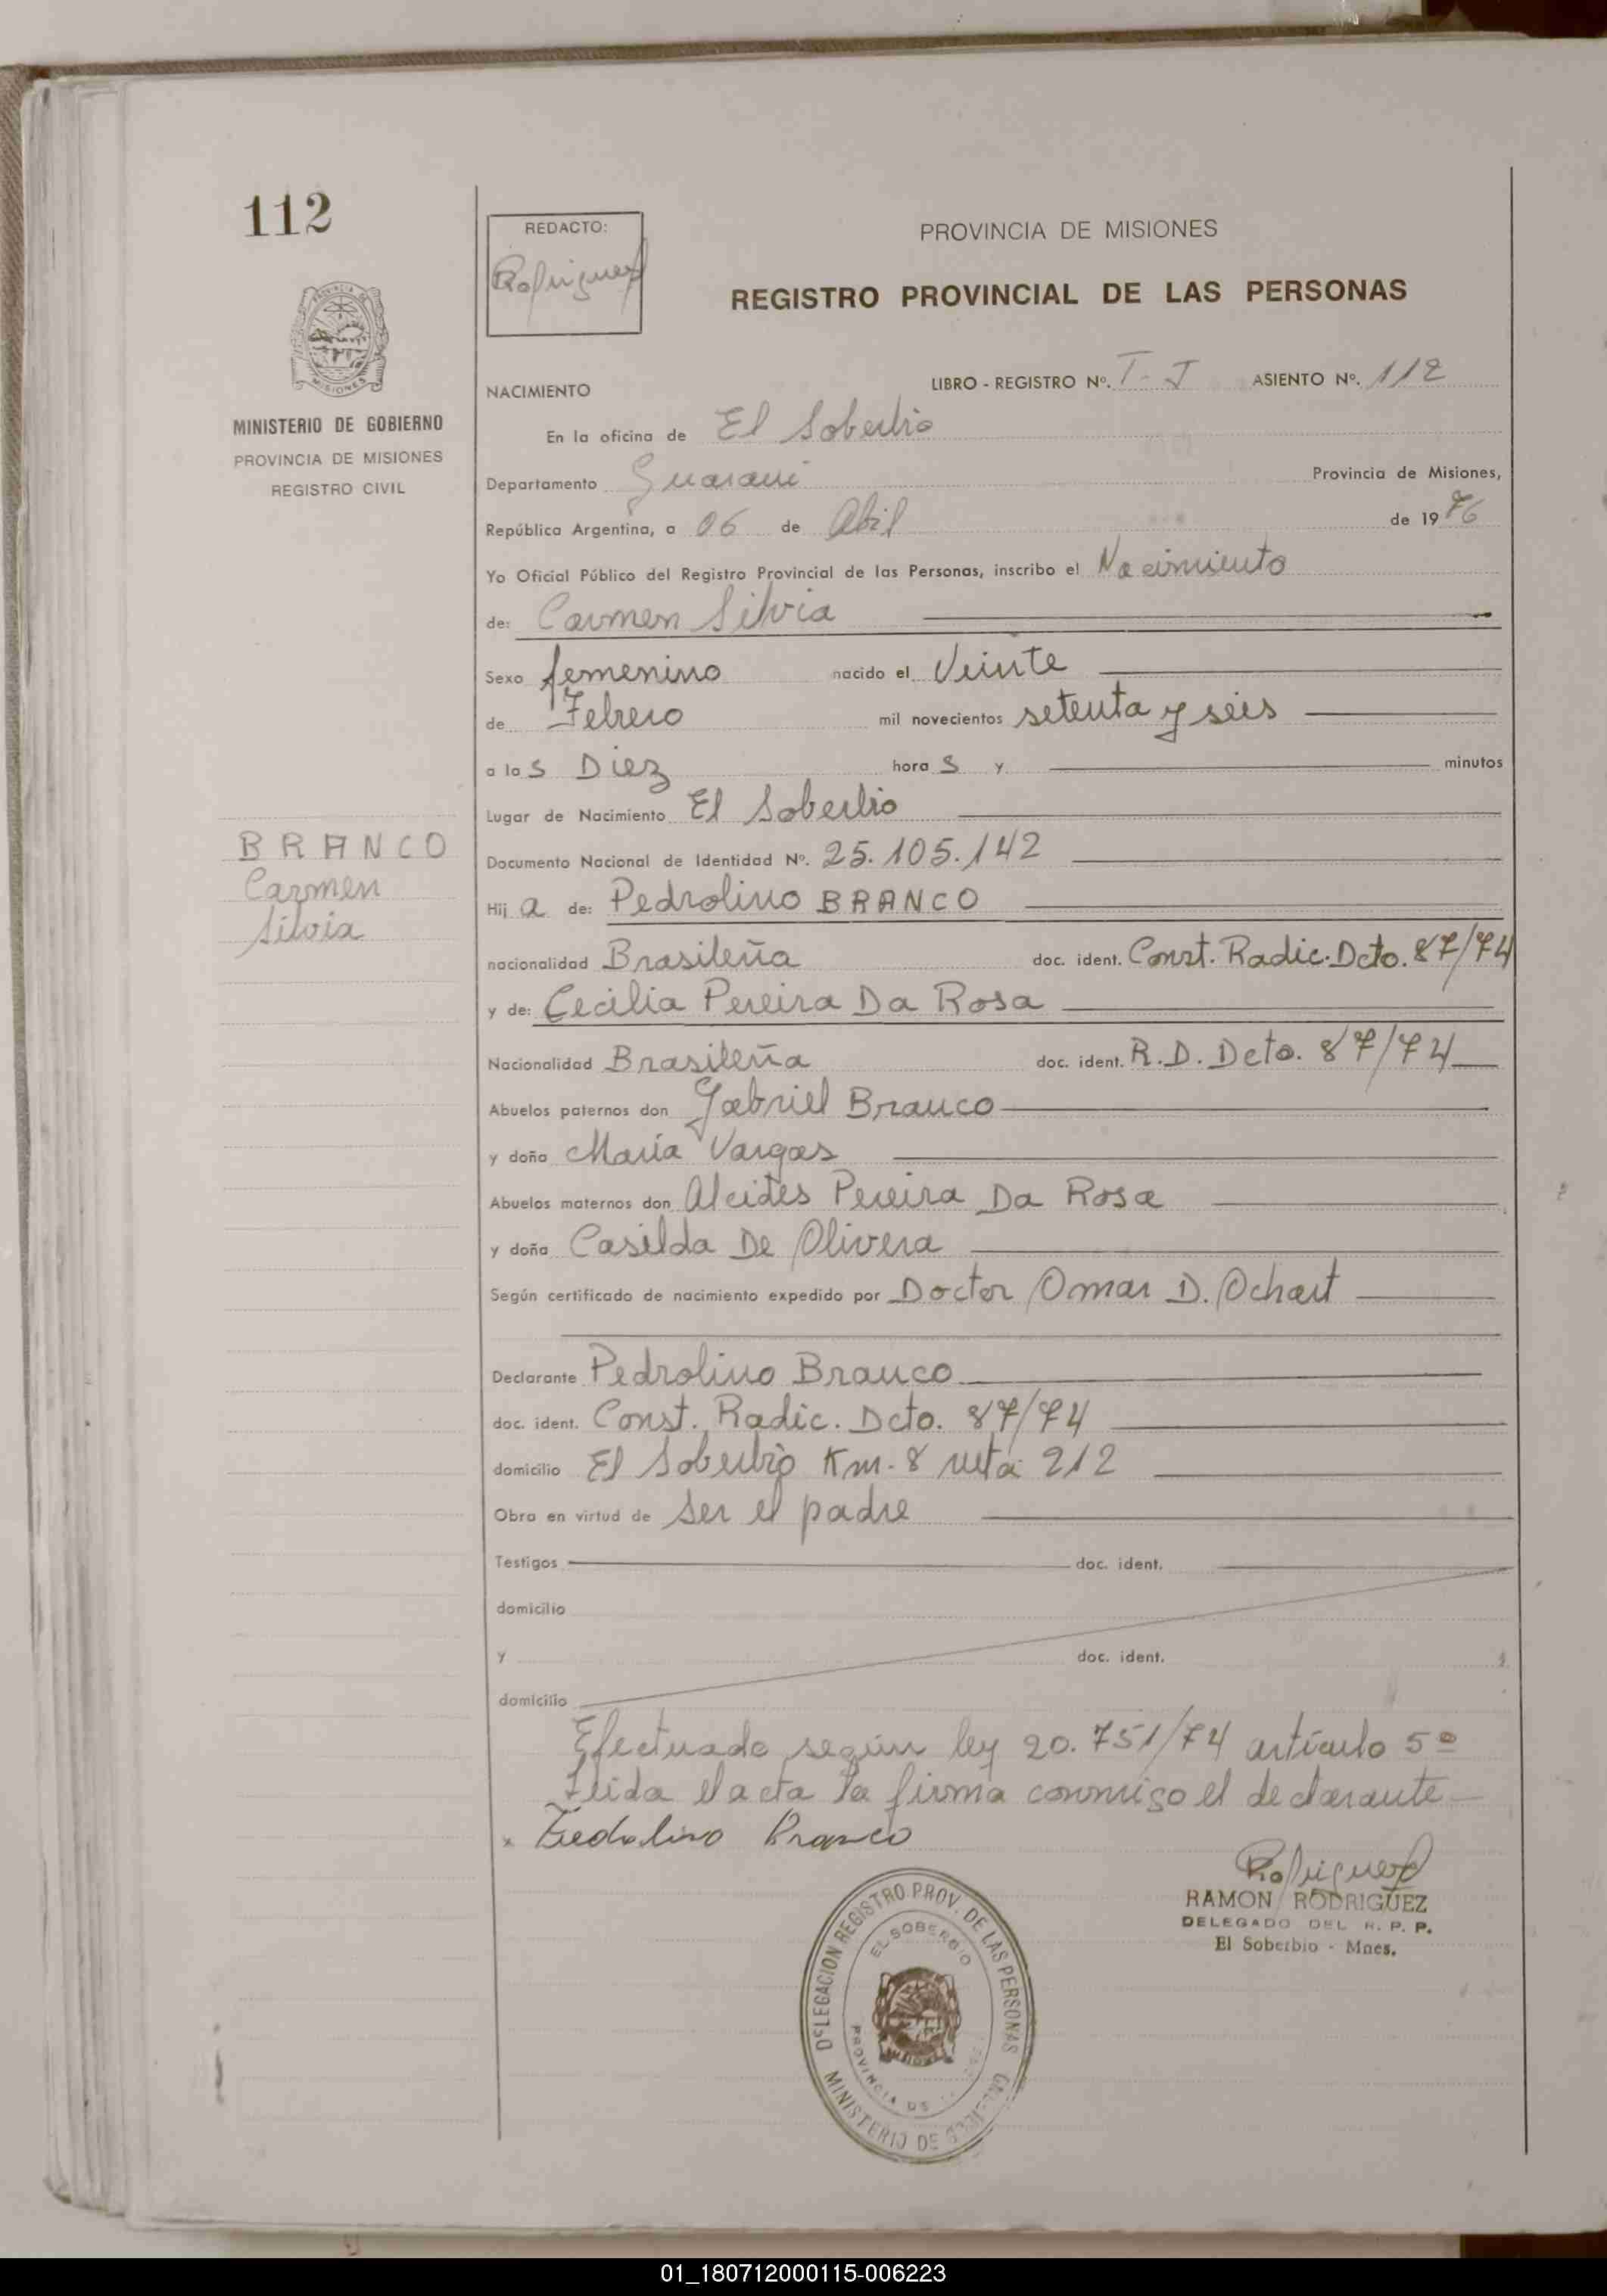 112
REDACTO:
Rodriguez
PROVINCIA DE MISIONES
REGISTRO PROVINCIAL DE LAS PERSONAS
MINISTERIO DE GOBIERNO
PROVINCIA DE MISIONES
REGISTRO CIVIL
NACIMIENTO LIBRO - REGISTRO Nº. T-I ASIENTO Nº. 112
En la oficina de El Soberbio
Departamento Guarani Provincia de Misiones,
República Argentina, a 06 de Abril de 1976
Yo Oficial Público del Registro Provincial de las Personas, inscribo el Nacimiento
de: Carmen Silvia
Sexo femenino nacido el Veinte
de Febrero mil novecientos setenta y seis
a las Diez horas y minutos
Lugar de Nacimiento El Soberbio
BRANCO
Carmen
Silvia
Documento Nacional de Identidad Nº. 25.105.142
Hija de: Pedrolino BRANCO
nacionalidad Brasileña doc. ident. Const. Radic. Dcto. 87/74
y de: Cecilia Pereira Da Rosa
Nacionalidad Brasileña doc. ident. R.D. Dcto. 87/74
Abuelos paternos don Gabriel Branco
y doña María Vargas
Abuelos maternos don Alcides Pereira Da Rosa
y doña Casilda De Olivera
Según certificado de nacimiento expedido por Doctor Omar D. Ochart
Declarante Pedrolino Branco
doc. ident. Const. Radic. Dcto. 87/74
domicilio El Soberbio Km. 8 ruta 212
Obra en virtud de ser el padre
Testigos doc. ident.
domicilio
y doc. ident.
domicilio
Efectuado según ley 20.751/74 artículo 5º
Leida el acta la firma conmigo el declarante
x Pedrolino Branco
Rodriguez
RAMON RODRIGUEZ
DELEGADO DEL R. P. P.
El Soberbio - Mnes.
DELEGACION REGISTRO PROV. DE LAS PERSONAS
EL SOBERBIO
PROVINCIA DE
MINISTERIO DE
01_180712000115-006223